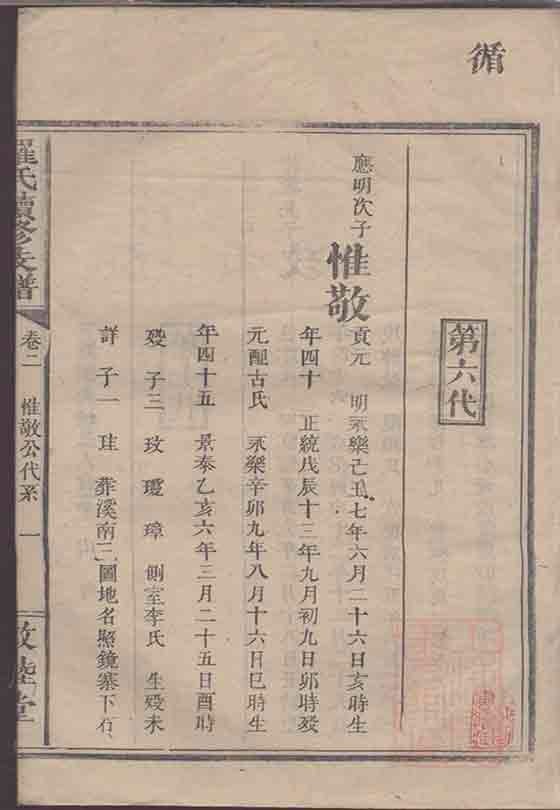 循
第六代
應明次子
惟敬
貢元 明永樂己丑七年六月二十六日亥時生
年四十 正統戊辰十三年九月初九日卯時歿
元配古氏 永樂辛卯九年八月十六日巳時生
年四十五 景泰乙亥六年三月二十五日酉時
歿 子三 玫 瓊 璋 側室李氏 生歿未
詳 子一 珪 葬溪南三圖地名照鏡寨下右
羅氏續修支譜
卷二 惟敬公代系 一
敦睦堂